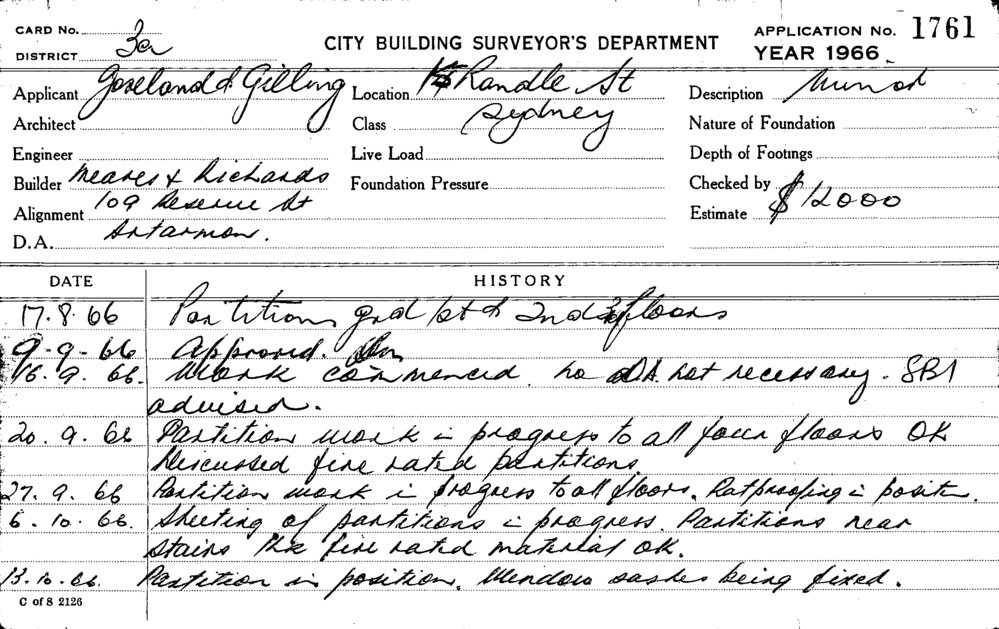 CARD No.
DISTRICT
CITY BUILDING SURVEYOR'S DEPARTMENT
APPLICATION No. 1761
YEAR 1966
Applicant Joseland & Gilling
Location Randle St
Description Minor
Architect
Class Sydney
Nature of Foundation
Engineer
Live Load
Depth of Footings
Builder Meares & Richards
Foundation Pressure
Checked by
Alignment 109 Reserve St
Estimate $12000
D.A. Artarmon.
DATE HISTORY
17.8.66 Partitions grd 1st & 2nd floors
9-9-66 Approved.
16.9.66. Work commenced. no D.A. not necessary. SBI
advised.
20.9.66 Partition work in progress to all four floors OK
Discussed fire rated partitions.
27.9.66 Partition work in progress to all floors. Ratproofing in positn.
6.10.66. Sheeting of partitions in progress. Partitions near
stairs fire rated material OK.
13.10.66. Partition in position. Window sashes being fixed.
C of S 2126